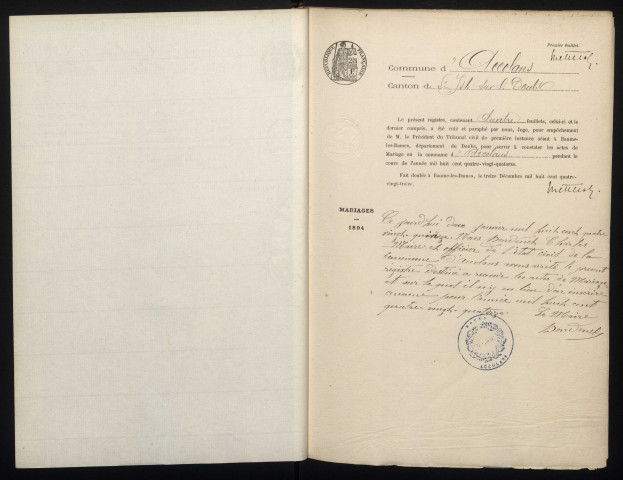 Premier feuillet
Commune d'Accolans
Canton de L'Isle sur le Doubs
RÉPUBLIQUE FRANÇAISE
Le présent registre, contenant quatre feuillets, celui-ci et le
dernier compris, a été coté et paraphé par nous, Juge, pour empêchement
de M. le Président du Tribunal civil de première instance séant à Baume-
les-Dames, département du Doubs, pour servir à constater les actes de
Mariage en la commune d'Accolans pendant le
cours de l'année mil huit cent quatre-vingt-quatorze.
Fait double à Baume-les-Dames, le treize Décembre mil huit cent quatre-
vingt-treize.
MARIAGES
1894
Ce jourd'hui deux janvier mil huit cent quatre
vingt quinze Nous Charles
Maire et officier de l'état civil de la
Commune d'Accolans avons arrêté le présent
registre destiné à recevoir les actes de Mariage
et sur lequel il n'y a eu lieu d'en inscrire
aucun pour l'année mil huit cent
quatre vingt quatorze. Le Maire
ACCOLANS